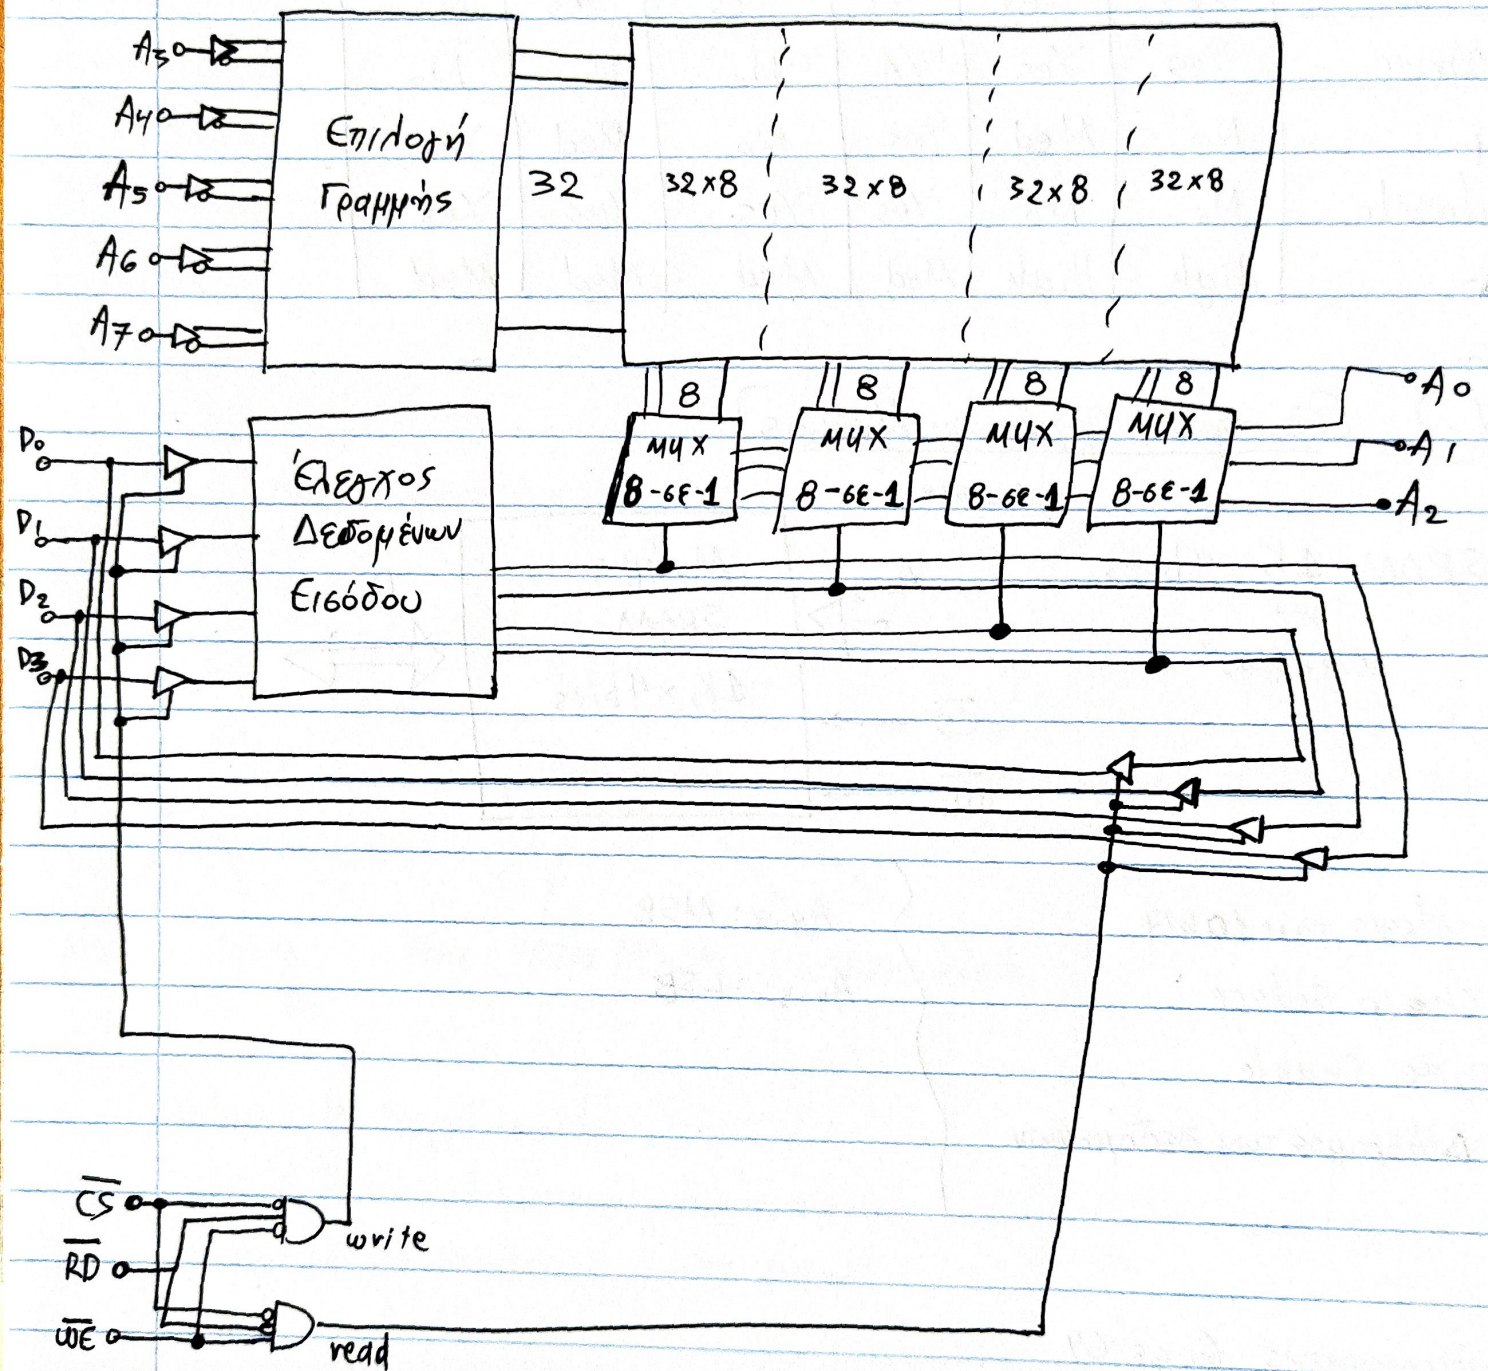 A3
A4
A5
A6
A7
Επιλογή
Γραμμής
32
32x8
32x8
32x8
32x8
8
8
8
8
MUX
8-σε-1
MUX
8-σε-1
MUX
8-σε-1
MUX
8-σε-1
A0
A1
A2
D0
D1
D2
D3
Έλεγχος
Δεδομένων
Εισόδου
C̅S̅
R̅D̅
W̅E̅
write
read